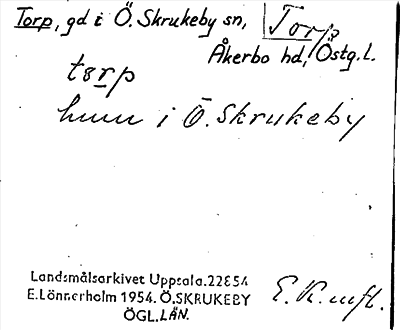 Torp, gd i Ö. Skrukeby sn, Torp
Åkerbo hd, Östg.l.
torp
hmn i Ö. Skrukeby
Landsmålsarkivet Uppsala. 22854
E. Lönnerholm 1954. Ö. SKRUKEBY
ÖGL. LÄN.